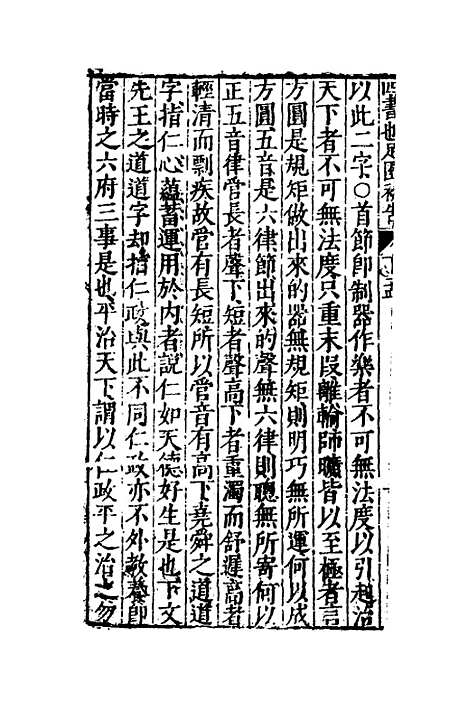 以此二字○首節即制器作樂者不可無法度以引起治
天下者不可無法度只重末段離輪師曠皆以至極者言
方圓是規矩做出來的器無規矩則明巧無所運何以成
方圓五音是六律節出來的聲無六律則聰無所寄何以
正五音律管長者聲下短者聲高下者重濁而舒遲高者
輕清而剽疾故管有長短所以管音有高下堯舜之道道
字指仁心蘊蓄運用於內者說仁如天德好生是也下文
先王之道道字却指仁政與此不同仁政亦不外教養即
當時之六府三事是也平治天下謂以仁政平之治之勿